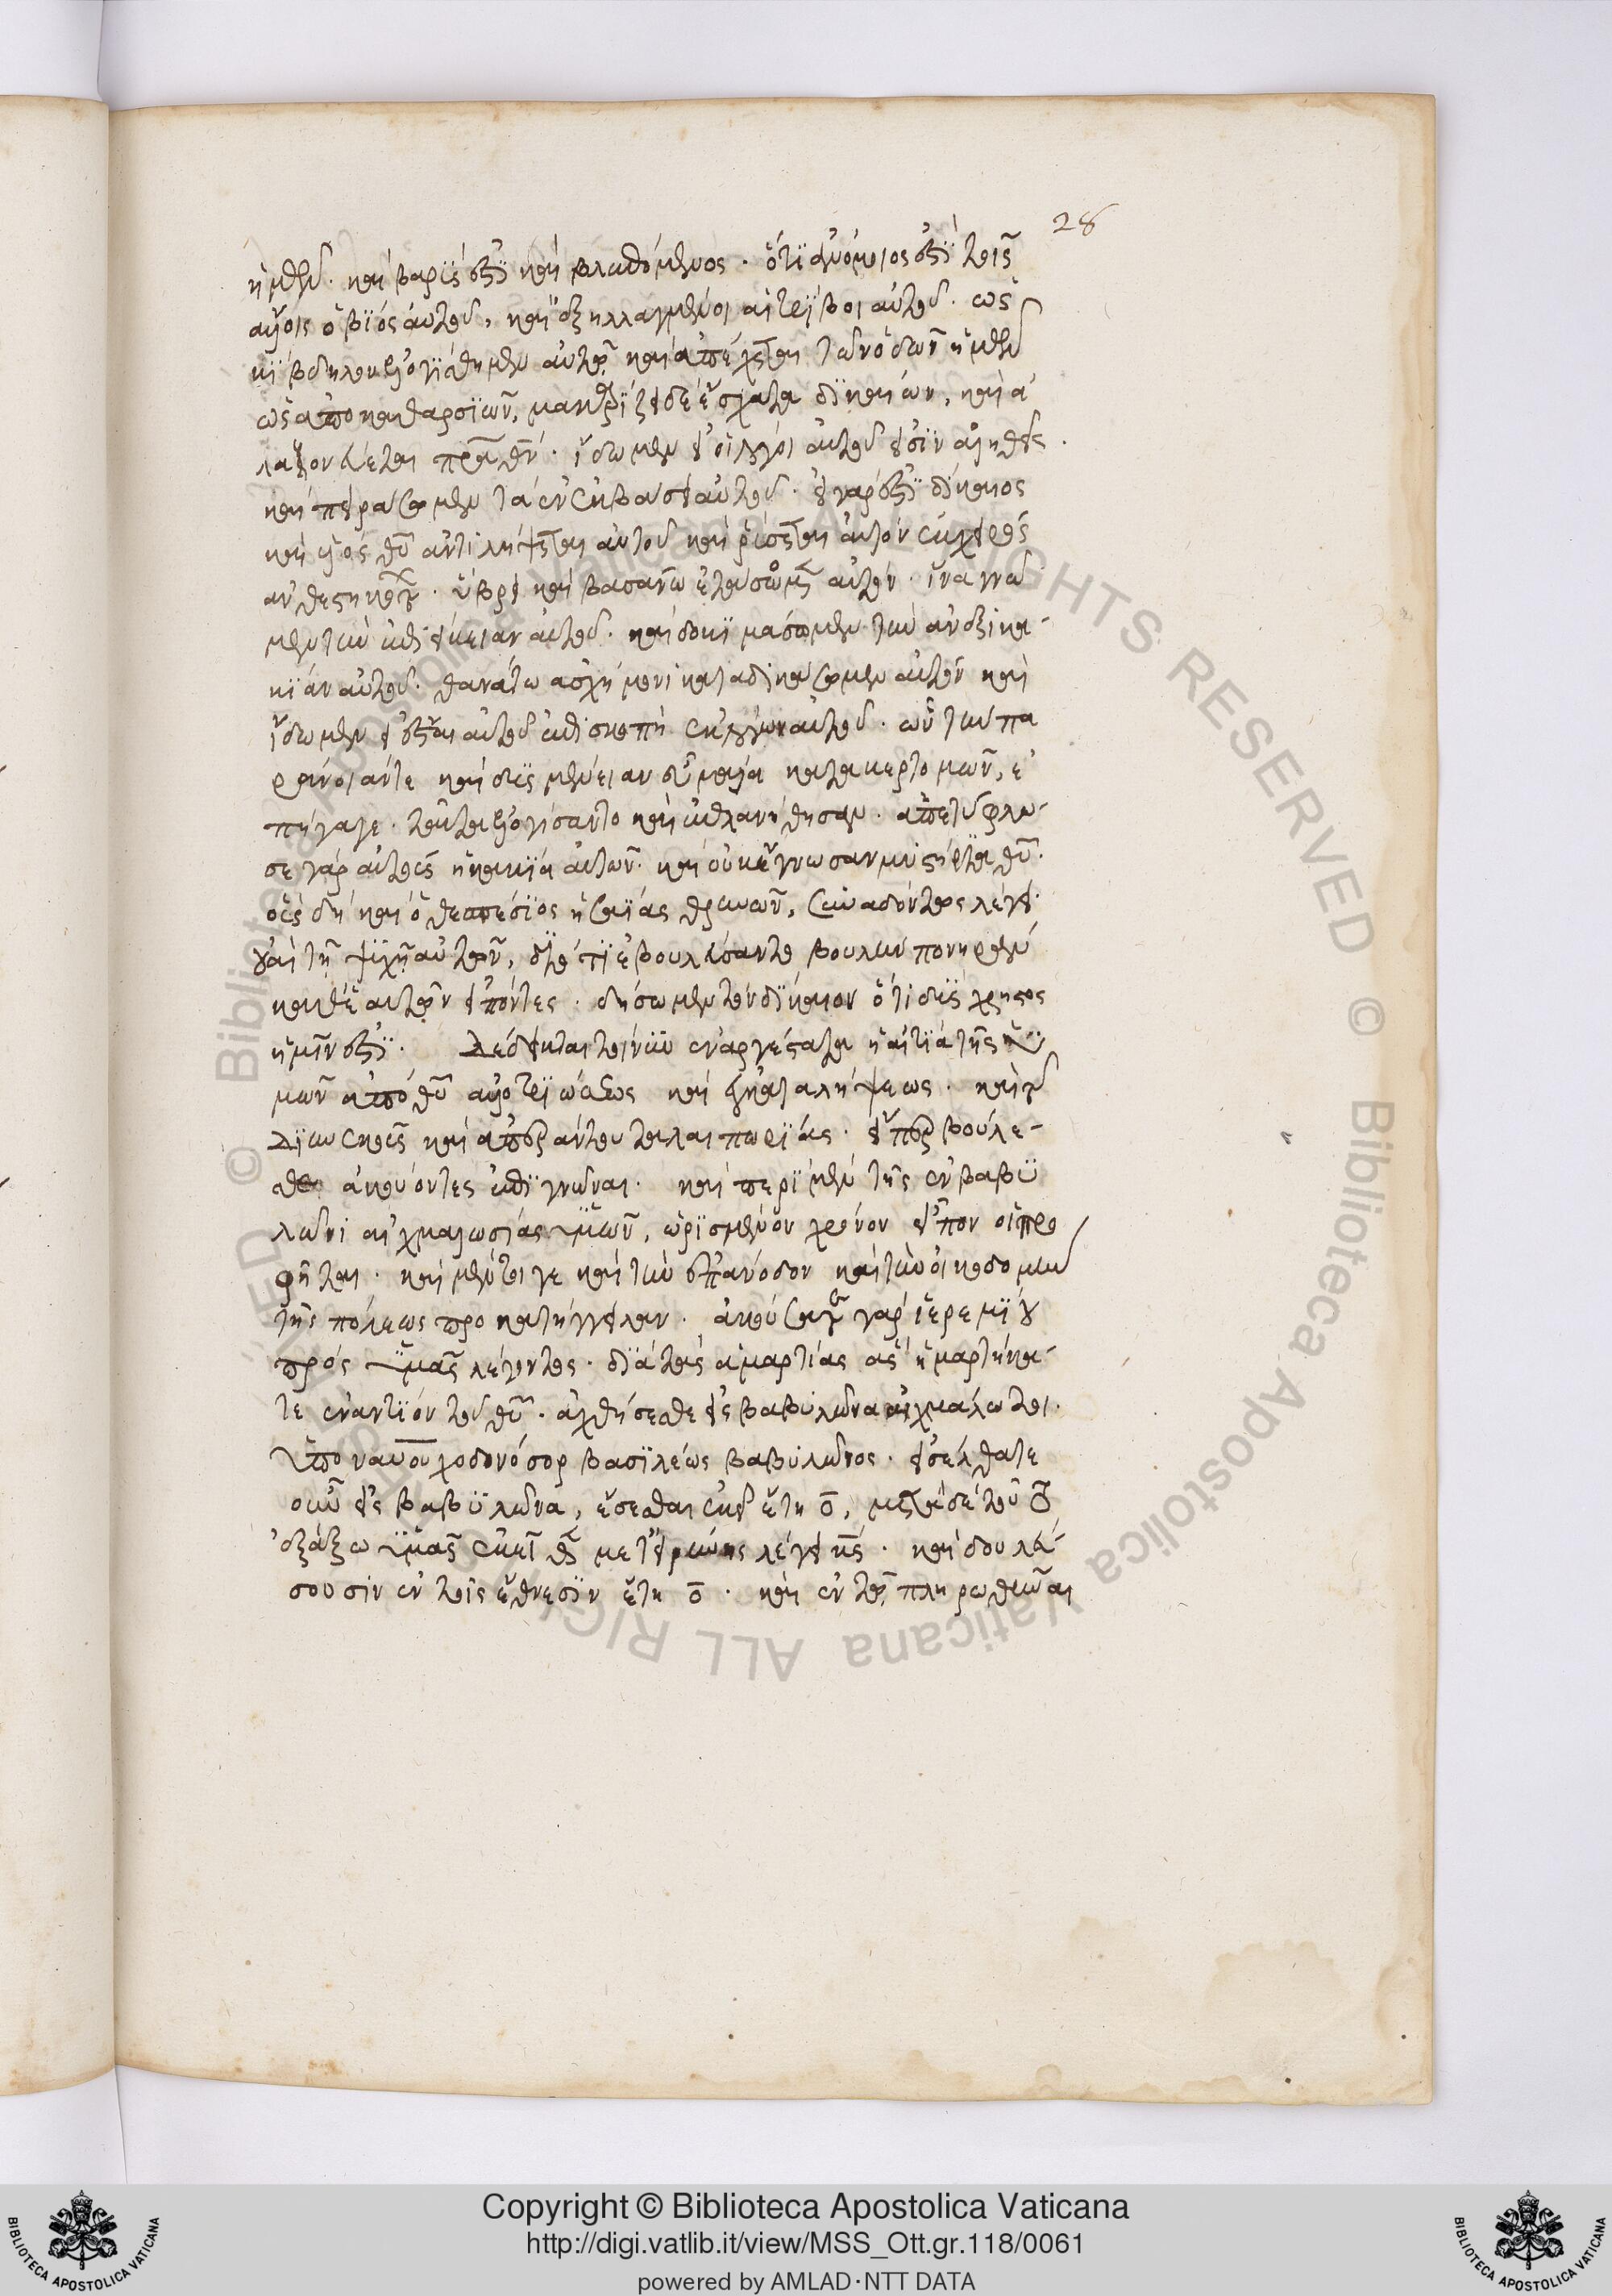 28
ἡμῶν. καὶ βαρύς ἐστὶ καὶ βλεπόμενος. ὅτι ἀνόμοιος ἐστὶ τοῖς
ἄλλοις ὁ βίος αὐτοῦ, καὶ ἐξηλλαγμέναι αἱ τρίβοι αὐτοῦ. ὡς
κίβδηλον ἐλογίσθημεν αὐτῷ καὶ ἀπέχεται τῶν ὁδῶν ἡμῶν
ὡς ἀπὸ ἀκαθαρσιῶν, μακαρίζει δὲ ἔσχατα δικαίων, καὶ ἀ
λαζονεύεται πατέρα θεόν. ἴδωμεν εἰ οἱ λόγοι αὐτοῦ εἰσὶν ἀληθεῖς.
καὶ πειράσωμεν τὰ ἐν ἐκβάσει αὐτοῦ. εἰ γάρ ἐστι δίκαιος
καὶ υἱὸς θῦ ἀντιλήψεται αὐτοῦ καὶ ῥύσεται αὐτὸν ἐκ χειρὸς
ἀνθεστηκότων. ὕβρει καὶ βασάνω ἐτάσωμεν αὐτόν. ἵνα γνῶ
μεν τὴν ἐπιείκειαν αὐτοῦ. καὶ δοκιμάσωμεν τὴν ἀνεξικα-
κίαν αὐτοῦ. θανάτω ἀσχήμονι καταδικάσωμεν αὐτὸν καὶ
ἴδωμεν εἰ ἔσται αὐτοῦ ἐπισκοπὴ ἐκ λόγων αὐτοῦ. ὧν τὴν πα
ράνοιάν τε καὶ δυσμένειαν
πήγαγε. ταῦτα ἐλογίσαντο καὶ ἐπλανήθησαν. ἀπετύφλω-
σε γὰρ αὐτοὺς ἡ κακία αὐτῶν. καὶ οὐκ ἔγνωσαν μυστήρια θῦ.
οὓς δὴ καὶ ὁ θεσπέσιος ἡσαΐας θρηνῶν, συναδόντως λέγει.
οὐαὶ τῇ ψυχῇ αὐτῶν, διότι ἐβουλεύσαντο βουλὴν πονηρὰν
καθ' ἑαυτῶν εἰπόντες. δήσωμεν τὸν δίκαιον ὅτι δύσχρηστος
ἡμῖν ἐστί. Δέδεικται τοίνυν ἐναργέστατα ἡ αἰτία τῆς ὑ
μῶν ἀπὸ θῦ ἀλλοτριώσεως καὶ ἐγκαταλήψεως. καὶ τοῦ
διηνεκοῦς καὶ ἀπεράντου ταλαιπωρίας. εἴπερ βούλε-
σθε ἀκούοντες ἐπιγνῶναι. καὶ περὶ μὲν τῆς ἐν βαβυ
λῶνι αἰχμαλωσίας ὑμῶν, ὡρισμένον χρόνον εἶπον οἱ προ
φῆται. καὶ μέντοι γε καὶ τὴν ἐπάνοδον καὶ τὴν οἰκοδομὴν
τῆς πόλεως προκατήγγειλαν. ἀκούσατε γὰρ ἱερεμίου
πρὸς ὑμᾶς λέγοντος. διὰ τὰς ἁμαρτίας ἃς ἡμαρτήκα-
τε ἐναντίον τοῦ θῦ. ἀχθήσεσθε εἰς βαβυλῶνα αἰχμάλωτοι.
ὑπὸ ναβουχοδονόσορ βασιλέως βαβυλῶνος. εἰσέλθατε
οὖν εἰς βαβυλῶνα, ἔσεσθαι ἐκεῖ ἔτη ο̄, μετὰ δὲ τοῦτο
ἐξάξω ὑμᾶς ἐκεῖθεν μετ' εἰρήνης λέγει κς. καὶ δουλεύ-
σουσιν ἐν τοῖς ἔθνεσιν ἔτη ο̄. καὶ ἐν τῷ πληρωθῆναι
Copyright © Biblioteca Apostolica Vaticana
http://digi.vatlib.it/view/MSS_Ott.gr.118/0061
powered by AMLAD·NTT DATA